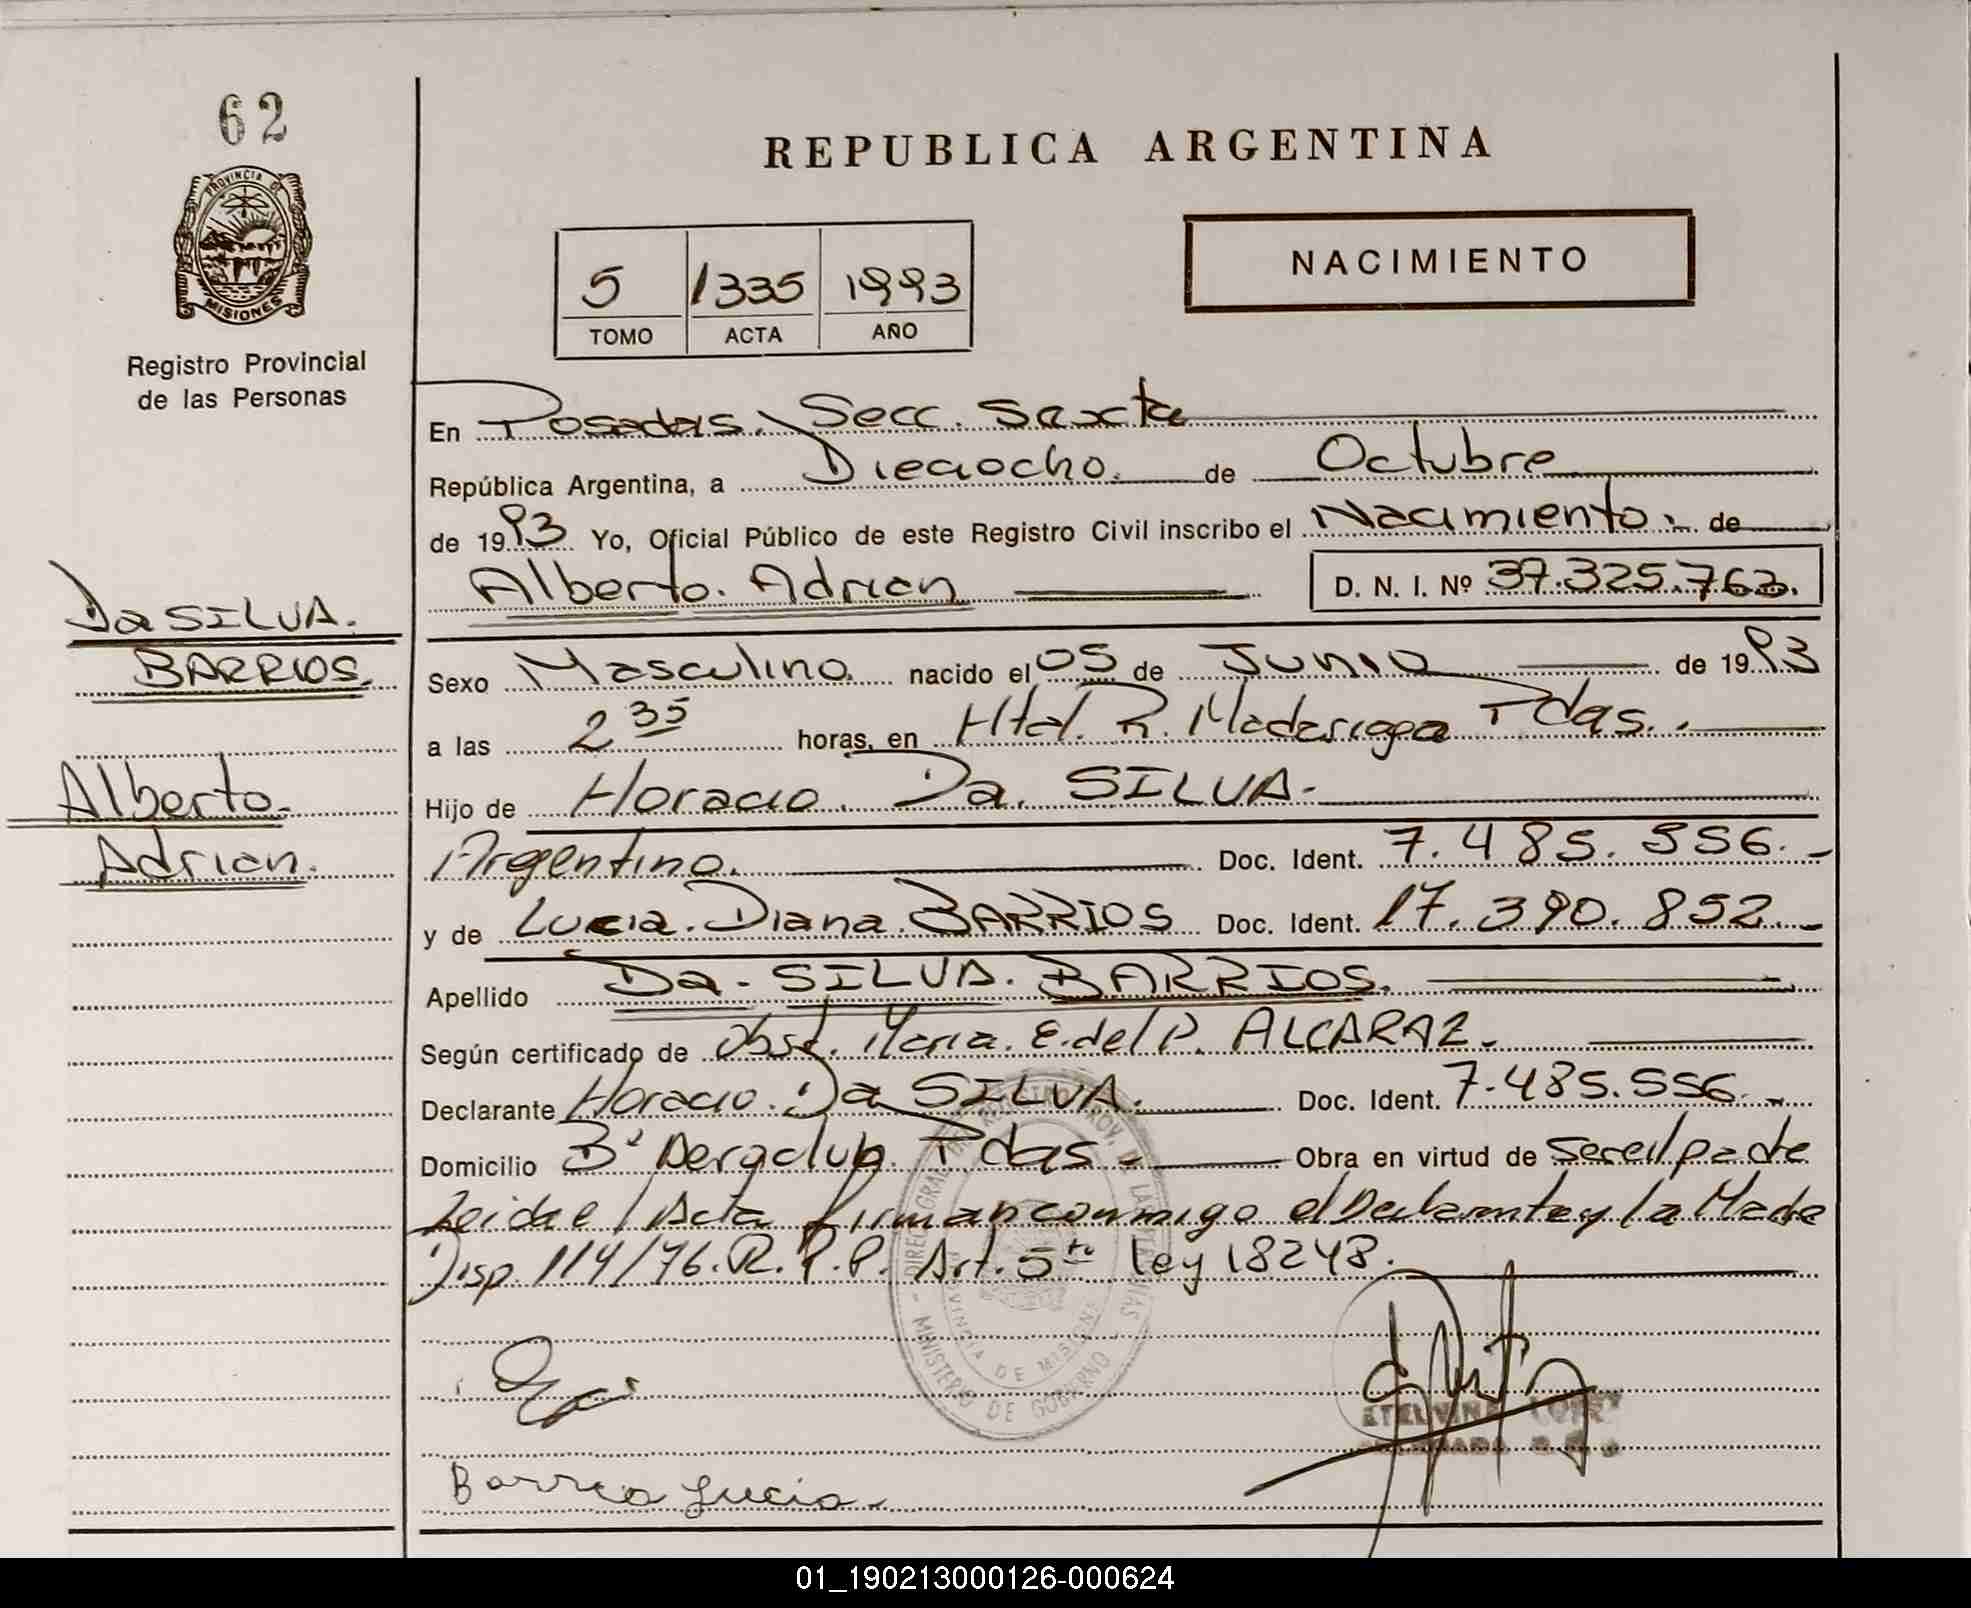 62
PROVINCIA DE
MISIONES
Registro Provincial
de las Personas
REPUBLICA ARGENTINA
NACIMIENTO
5 1335 1993
TOMO ACTA AÑO
En Posadas. Secc. Sexta
República Argentina, a Dieciocho. de Octubre
de 1993 Yo, Oficial Público de este Registro Civil inscribo el Nacimiento. de
Alberto. Adrian D. N. I. Nº 37.325.763.
Da SILVA.
BARRIOS.
Alberto.
Adrian.
Sexo Masculino. nacido el 05 de Junio de 1993
a las 2 35 horas, en Htal. R. Madariaga Pdas.
Hijo de Horacio. Da. SILVA.
Argentino. Doc. Ident. 7.485.556.
y de Lucia. Diana. BARRIOS Doc. Ident. 17.390.852.
Apellido Da. SILVA. BARRIOS.
Según certificado de Obst. Maria. E. del P. ALCARAZ.
Declarante Horacio. Da SILVA. Doc. Ident. 7.485.556.
Domicilio Bº Aeroclub. Pdas. Obra en virtud de ser el padre
Leida el Acta firman conmigo el Declarante y la Madre
Disp. 114/76. R. P. P. Art. 5to ley 18248.
DIRECC. GRAL. DEL REGISTRO PROV. DE LAS PERSONAS
PROVINCIA DE MISIONES
- MINISTERIO DE GOBIERNO -
Barrio Lucia.
01_190213000126-000624